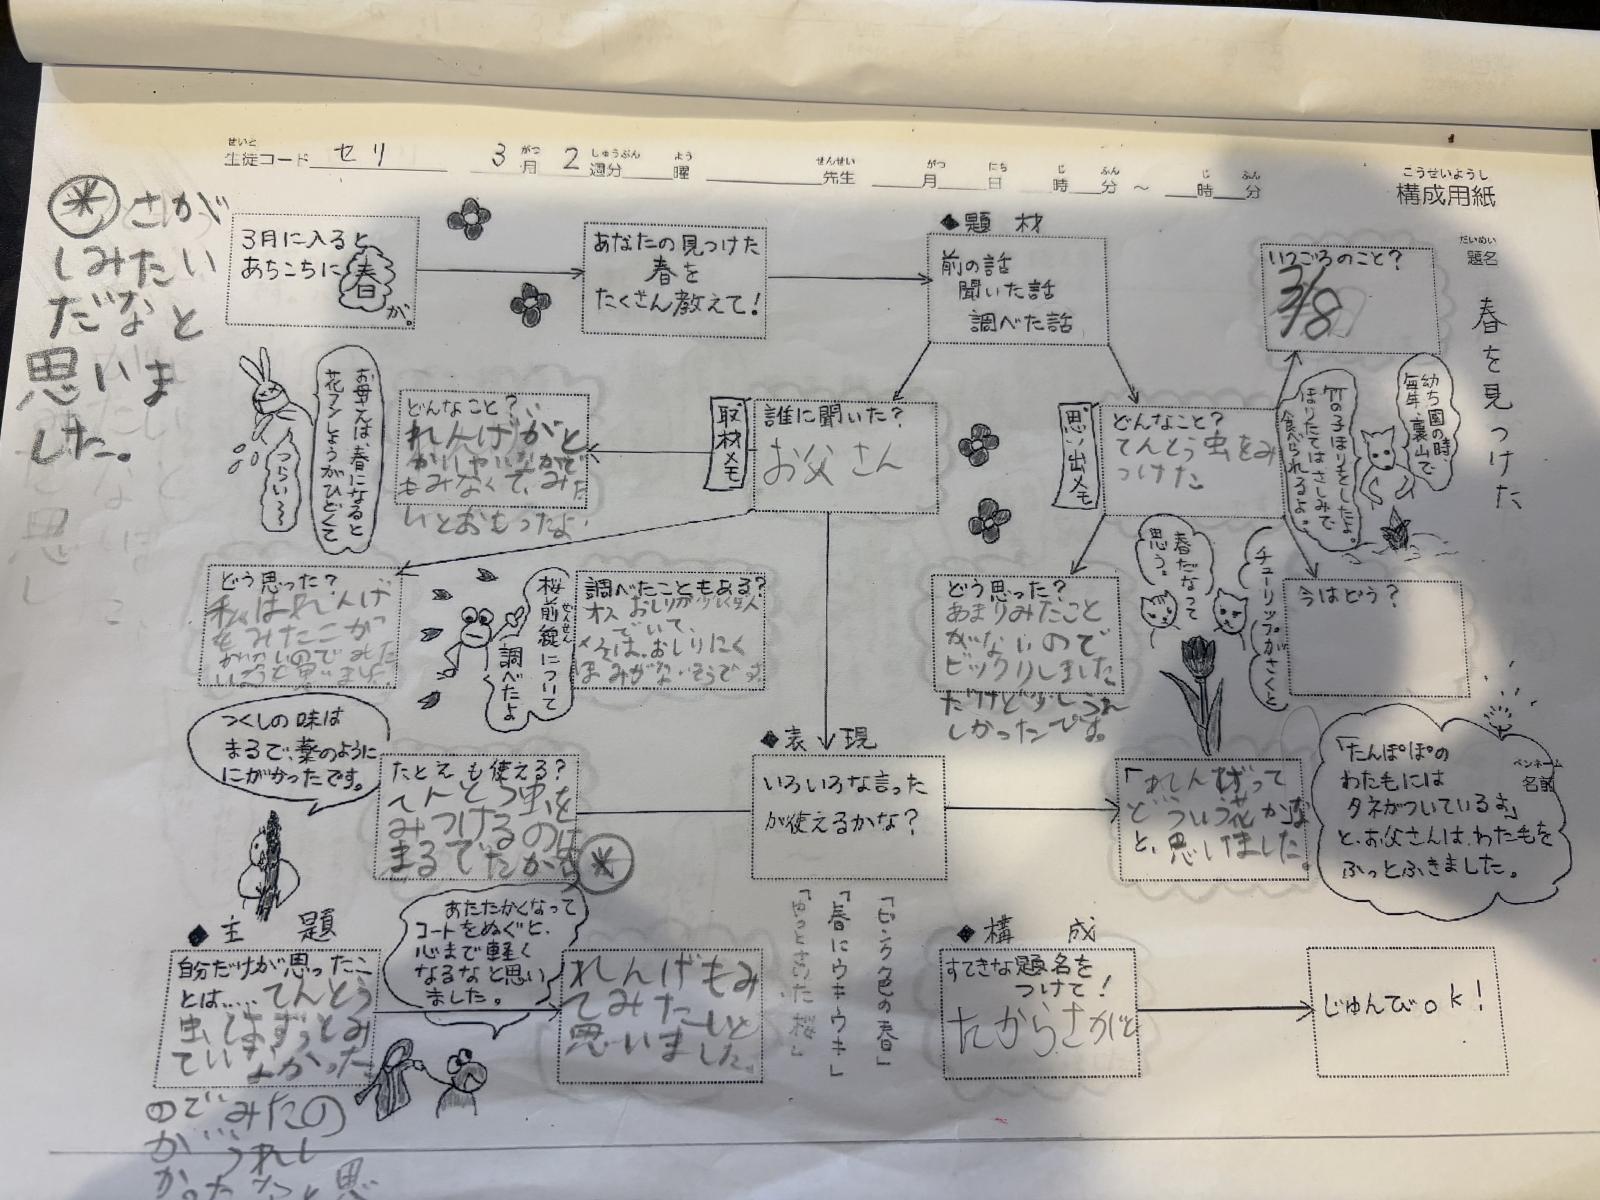 せいと
生徒コード セリ 3月 2週分 曜 先生 月 日 時 分 ～ 時 分
がつ しゅうぶん よう せんせい がつ にち じ ふん じ ふん
こうせいようし
構成用紙
だいめい
題名
春を見つけた
ペンネーム
名前
3月に入ると
あちこちに春が。
あなたの見つけた
春を
たくさん教えて!
◆題材
前の話
聞いた話
調べた話
いつごろのこと?
3/8
思い出メモ
どんなこと?
てんとう虫をみ
つけた
幼ち園の時、
毎年、裏山で
竹の子ほりをしたよ。
ほりたてはさしみで
食べられるよ。
取材メモ
誰に聞いた?
お父さん
どんなこと?
れんげがと
かいじゃいなかで
もみなくて、みた
いとおもったよ
お母さんは、春になると
花フンしょうがひどくて
つらい～
どう思った?
私はれんげ
をみたことが
調べたこともある?
オス おしりが
でいて、
メスは、おしりにく
ぼみがないそうです
桜前線について
ぜんせん
調べたよ
どう思った?
あまりみたこと
がないので
ビックリしました
だけど少しうれ
しかったです。
チューリップがさくと
春だなって
思う。
今はどう?
つくしの味は
まるで、薬のように
にがかったです。
たとえも使える?
てんとう虫を
みつけるのは
まるでたから
※さがし
みたい
だなと
思いま
した。
◆表現
いろいろな言った
が使えるかな?
「ピンク色の春」
「春にウキウキ」
「れんげって
どういう花かな
と、思いました。
「たんぽぽの
わたもには
タネがついているよ」
と、お父さんは、わた毛を
ふっとふきました。
◆主題
自分だけが思ったこ
とは……てんとう
虫はずっとみ
ていなかった
のでみたの
が
うれし
かった
なと思
あたたかくなって
コートをぬぐと、
心まで軽く
なるなと思い
ました。
れんげもみ
てみたいと
思いました。
◆構成
すてきな題名を
つけて!
たからさがし
じゅんびok!